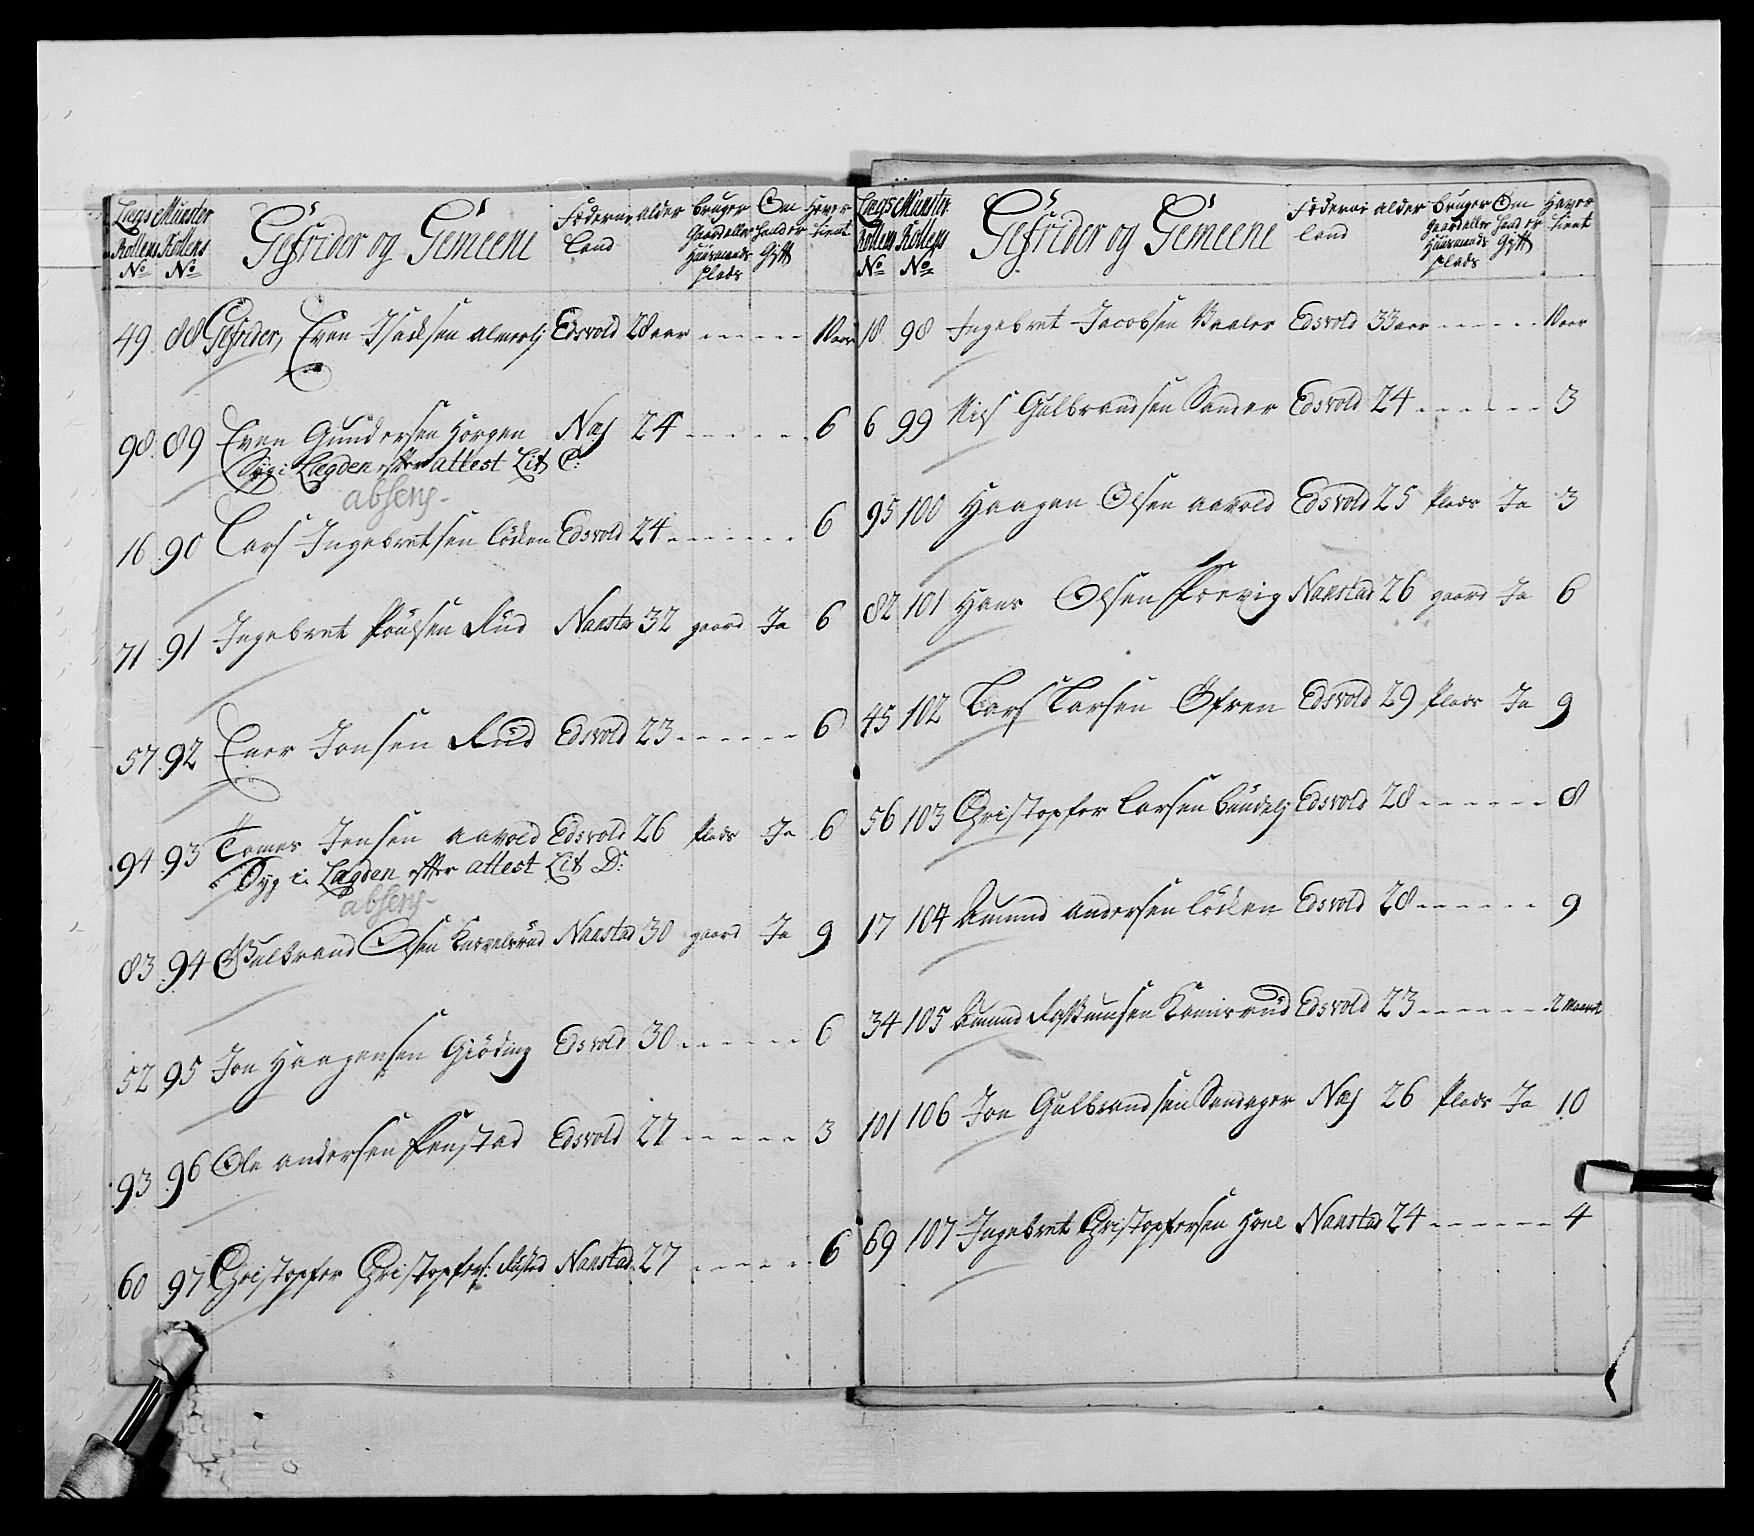 Lægs Rollens No | Münster Rollens No | Gefrider og Gemeene | Føderne land | alder | bruger Gaard eller Huusmands plads | Om hand er Gift | Haver tient
49 88 Gefrider, Even Isacksen almerlj Edsvold 28 aar - - - - - 10 aar
98 89 Even Gundersen Horgen Næs 24 - - - - - 6
Syg i Lægden efter attest Lit C:
absens
16 90 Lars Ingebretsen Löken Edsvold 24 - - - - - - 6
71 91 Ingebret Poulsen Rud Nanstad 32 gaard Ja 6
57 92 Ener Jonsen Rud Edsvold 23 - - - - - - 6
94 93 Tomes Jensen aavold Edsvold 26 Plads Ja 6
Syg i Lægden efter attest Lit D:
absens
83 94 Gulbrand Olsen Knovelsrud Nanstad 30 gaard Ja 9
52 95 Jon Haagensen Giöding Edsvold 30 - - - - - - 6
93 96 Ole andersen Finstad Edsvold 27 - - - - - 3
60 97 Christopfer Christopfers: Røstad Nanstad 27 - - - - - 6
Lægs Rollens No | Münster Rollens No | Gefrider og Gemeene | Føderne land | alder | bruger Gaard eller Huusmands plads | Om hand er Gift | Haver tient
18 98 Ingebret Jacobsen Kaaler Edsvold 33 aar - - - - - 10 aar
6 99 Nils Gulbrandsen Sander Edsvold 24 - - - - - - 3
95 100 Haagen Olsen aavold Edsvold 25 Plads Ja 3
82 101 Hans Olsen Præxig Nanstad 26 gaard Ja 6
45 102 Lars Larsen Öfren Edsvold 29 Plads Ja 9
56 103 Christopfer Larsen Bundelj Edsvold 28 - - - - - - 8
17 104 Amund andersen Löken Edsvold 28 - - - - - - 9
34 105 Amund Rasmusen Kamisrud Edsvold 23 - - - - - - 2 Maanet
101 106 Jon Gulbrandsen Sandager Næs 26 Plads Ja 10
69 107 Ingebret Christopfersen Hoel Nanstad 24 - - - - - - 4